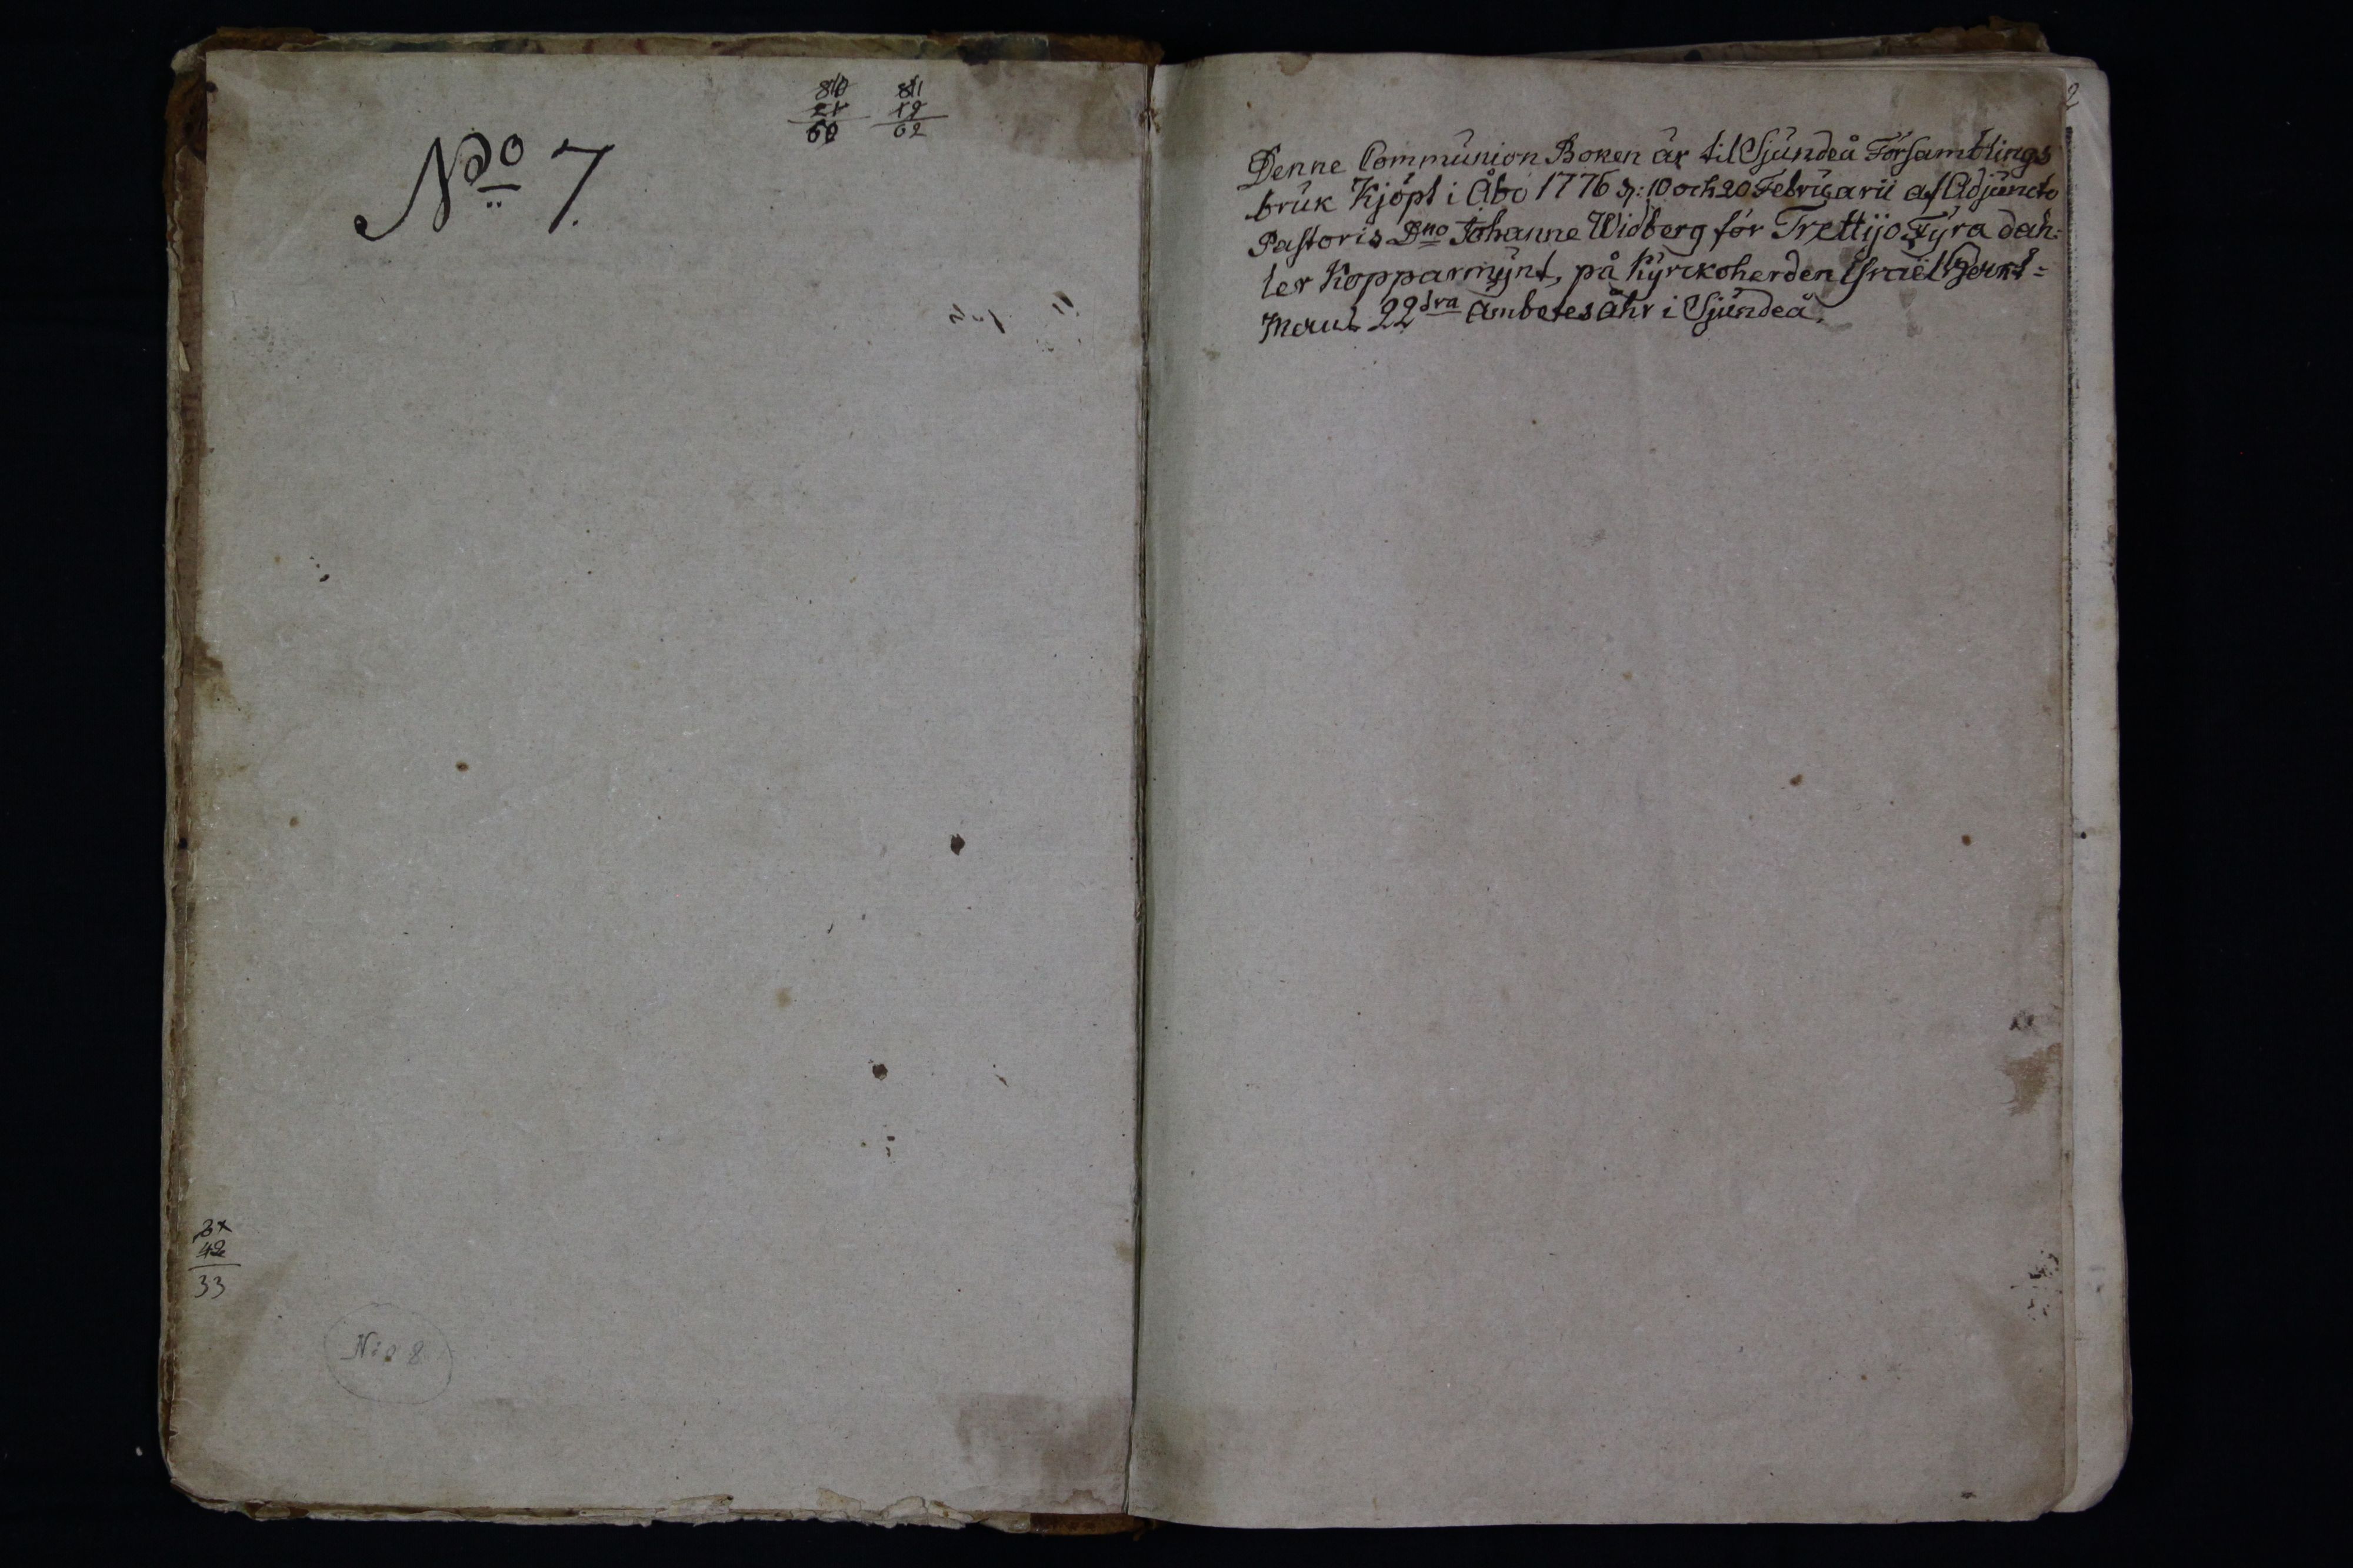 No 7.
810 811
21 12
60 62
42
33
No 8
Denne Communion Boken är til Sjundeå Församblings
bruk Kjöpt i Åbo 1776 d: 10 och 20 Februarii af Adjuncto
Pastoris Dno Johanne Widberg för Trettijo Fyra dah-
ler Kopparmynt, på Kyrckoherden Israël
22dra Ämbetes Åhr i Sjundeå.